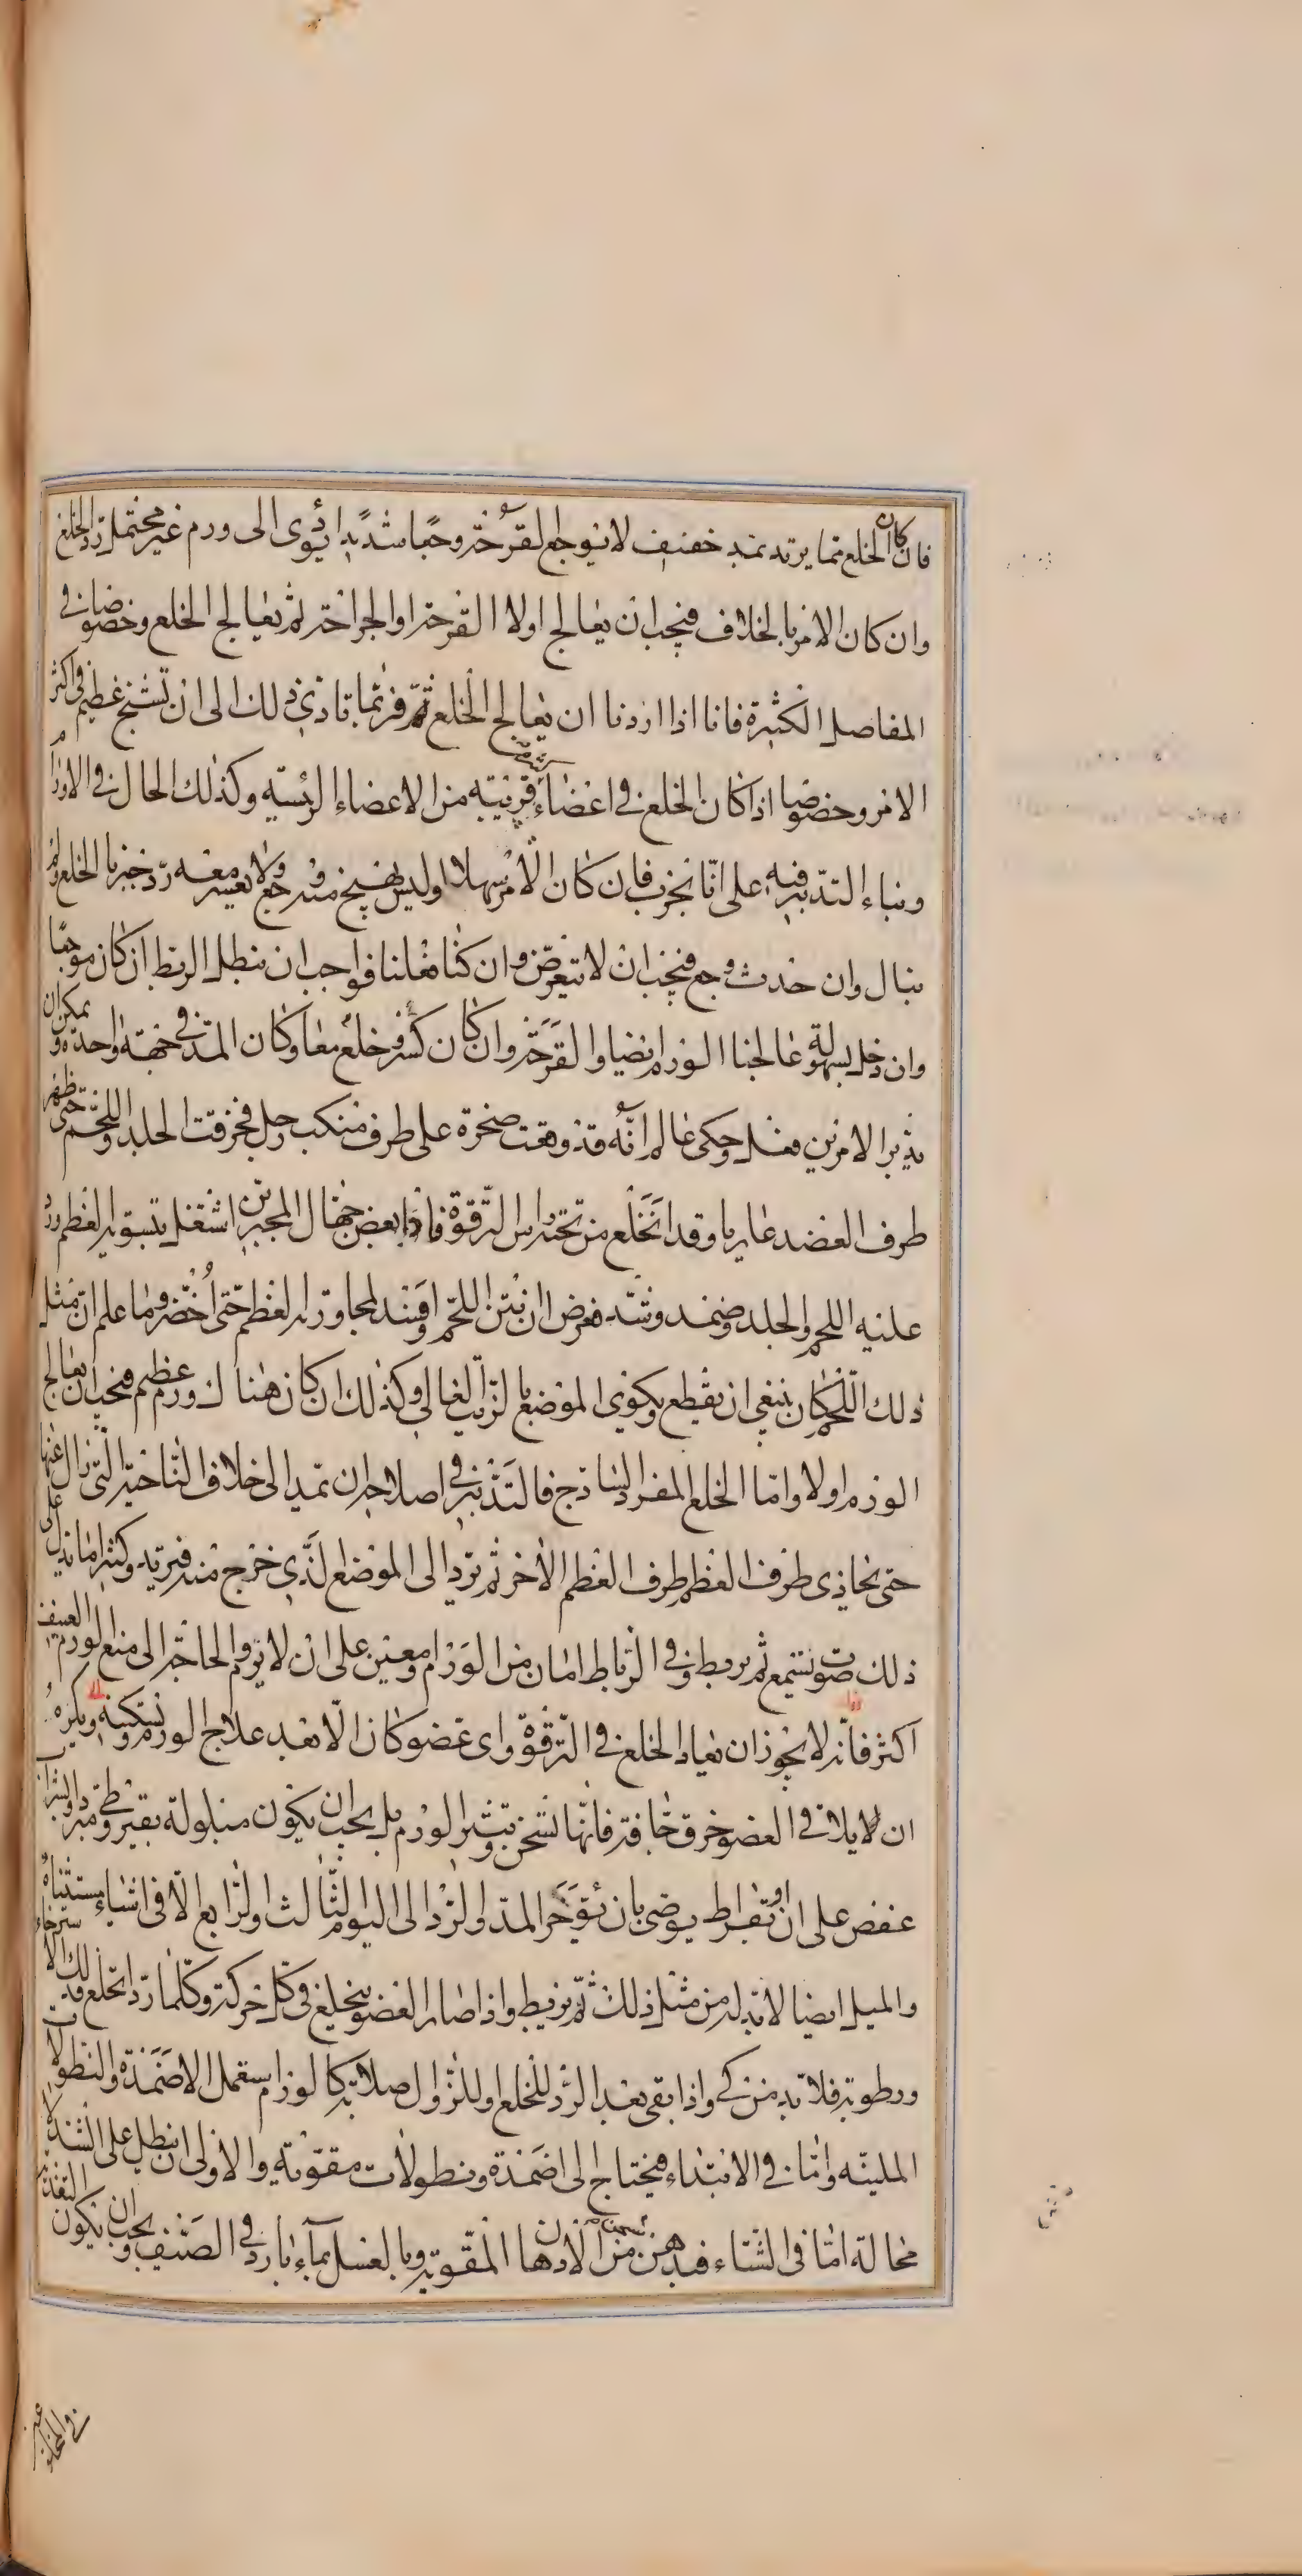 فان كان الخلع مما يرتد بمد خفيف لا يوجع القرحة وجعا شديدا يؤدي الى ورم غير محتمل رد الخلع
وان كان الامر بالخلاف فيجب ان يعالج اولا القرحة او الجراحة ثم يعالج الخلع وخصوصا في
المفاصل الكثيرة فانا اذا اردنا ان يعالج الخلع ثم فربما تاذي ذلك الى ان تشنج عظيم في اكثر
الامر وخصوصا اذا كان الخلع في اعضاء قريبة من الاعضاء الرئيسه وكذلك الحال في الاورام
وبناء التدبير فيه على انا نجرب فان كان الامر سهلا وليس يهيج منه وجع ولا يعسر معه رد جبرنا الخلع ولم
نبال وان حدث وجع فيجب ان لا نتعرض وان كنا فعلنا فواجب ان نبطل الربط ان كان موجعا
وان دخل بسهولة عالجنا الورم ايضا والقرحة وان كان كسر خلع معا وكان المد في جهة واحدة ويمكن ان
تدبير الامرين فعل وحكى عالم انه قد وقعت صخرة على طرف منكب رجل فخرقت الجلد واللحم حتى ظهر
طرف العضد عاريا وقد انخلع من تحت راس الترقوة فاذا بعض جهال المجبرين اشتغل بتسوية العظم ورد
عليه اللحم والجلد وضمد وشد فعرض ان نتن اللحم وافسد لمجاورته العظم حتى اخضر وما علم ان مثل
ذلك اللحم كان ينبغي ان يقطع ويكوى الموضع بالزيت الغالي وكذلك ان كان هناك ورم عظيم فيجب ان يعالج
الورم اولا واما الخلع المفرد الساذج فالتدبير في اصلاحه ان تمد الى خلاف الناحية التي زال عنها
حتى يحاذي طرف العظم طرف العظم الاخر ثم ترد الى الموضع الذي خرج منه فيرتد وكثيرا ما يدل على
ذلك صوت يسمع ثم يربط وفي الرباط امان من الورم ومعين على ان لا يروم والحاجة الى منع الورم العنيف
اكثر فانه لا يجوز ان يعاد الخلع في الترقوة واي عضو كان الا بعد علاج الورم وتسكينه ويكره
ان لا يلاقي العضو خرق جافة فانها تسخن وتثير الورم بل يجب ان يكون مبلولة بقيروطي مبرد او بشراب
عفص على ان ابقراط يوصى بان يؤخر المد والرد الى اليوم الثالث والرابع الا في اشياء مستثناه
والميل ايضا لا بد له من مثل ذلك ثم يربط واذا صار العضو ينخلع في كل حركة وكلما رد انخلع فذلك لاسترخاء
ورطوبة فلا بد من كي واذا بقي بعد الرد للخلع او للزوال صلابة كالورم استعمل الاضمدة والنطولات
الملينه واما في الابتداء فيحتاج الى اضمدة ونطولات مقوية والاولى ان ينطل على الشد لا
محالة اما في الشتاء فبدهن من الادهان المقوية وبالغسل بماء بارد في الصيف ويجب ان يكون التغذية